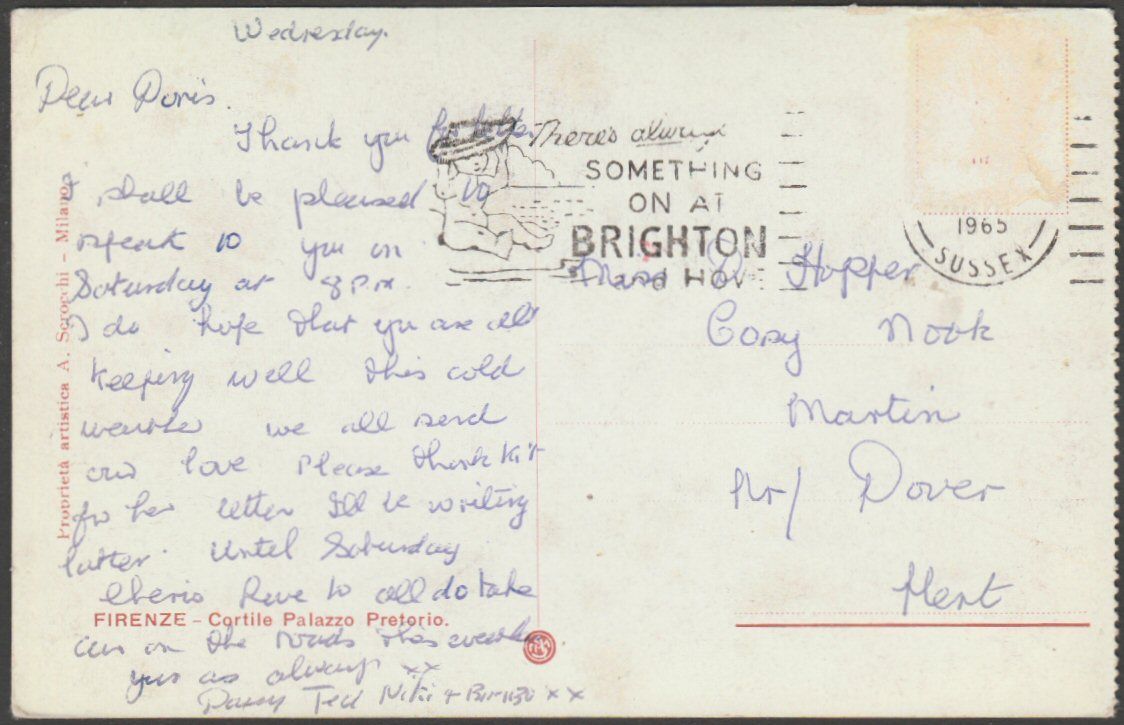 Wednesday.
Dear Doris.
Thank you for letter
I shall be pleased to
speak to you on
Saturday at 8 P.M.
I do hope that you are all
keeping well this cold
weather we all send
our love Please thank Kit
for her letter I'll be writing
latter. Until Saturday
cherio love to all do take
care on the roads this weather
yrs as always xx
Ted Niki + xx
There's always
SOMETHING
ON AT
BRIGHTON
and HOVE
1965
SUSSEX
Miss D Hopper
Cosy Nook
Martin
Nr/ Dover
Kent
Proprietà artistica A. Scrocchi - Milano
FIRENZE - Cortile Palazzo Pretorio.